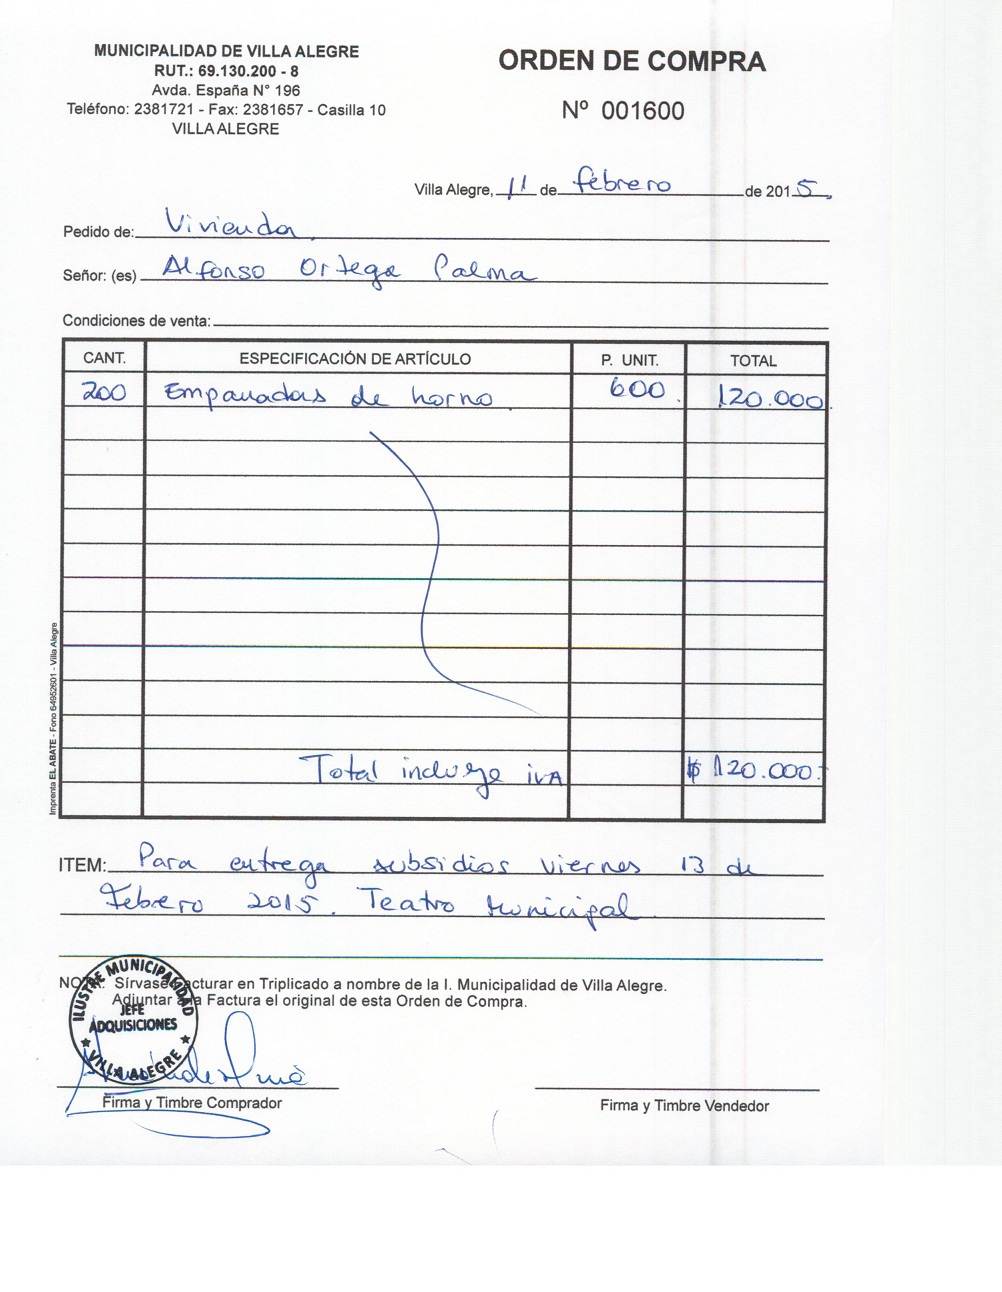 MUNICIPALIDAD DE VILLA ALEGRE
RUT.: 69.130.200 - 8
Avda. España N° 196
Teléfono: 2381721 - Fax: 2381657 - Casilla 10
VILLA ALEGRE
ORDEN DE COMPRA
Nº 001600
Villa Alegre, 11 de febrero de 2015,
Pedido de: Vivienda.
Señor: (es) Alfonso Ortega Palma
Condiciones de venta:
CANT. ESPECIFICACIÓN DE ARTÍCULO P. UNIT. TOTAL
200 Empanadas de horno. 600. 120.000.
Total incluye iva $ 120.000.-
Imprenta EL ABATE - Fono 64952601 - Villa Alegre
ITEM: Para entrega subsidios viernes 13 de
Febrero 2015. Teatro Municipal.
NOTA: Sírvase Facturar en Triplicado a nombre de la I. Municipalidad de Villa Alegre.
Adjuntar a la Factura el original de esta Orden de Compra.
ILUSTRE MUNICIPALIDAD
JEFE
ADQUISICIONES
VILLA ALEGRE
Firma y Timbre Comprador
Firma y Timbre Vendedor